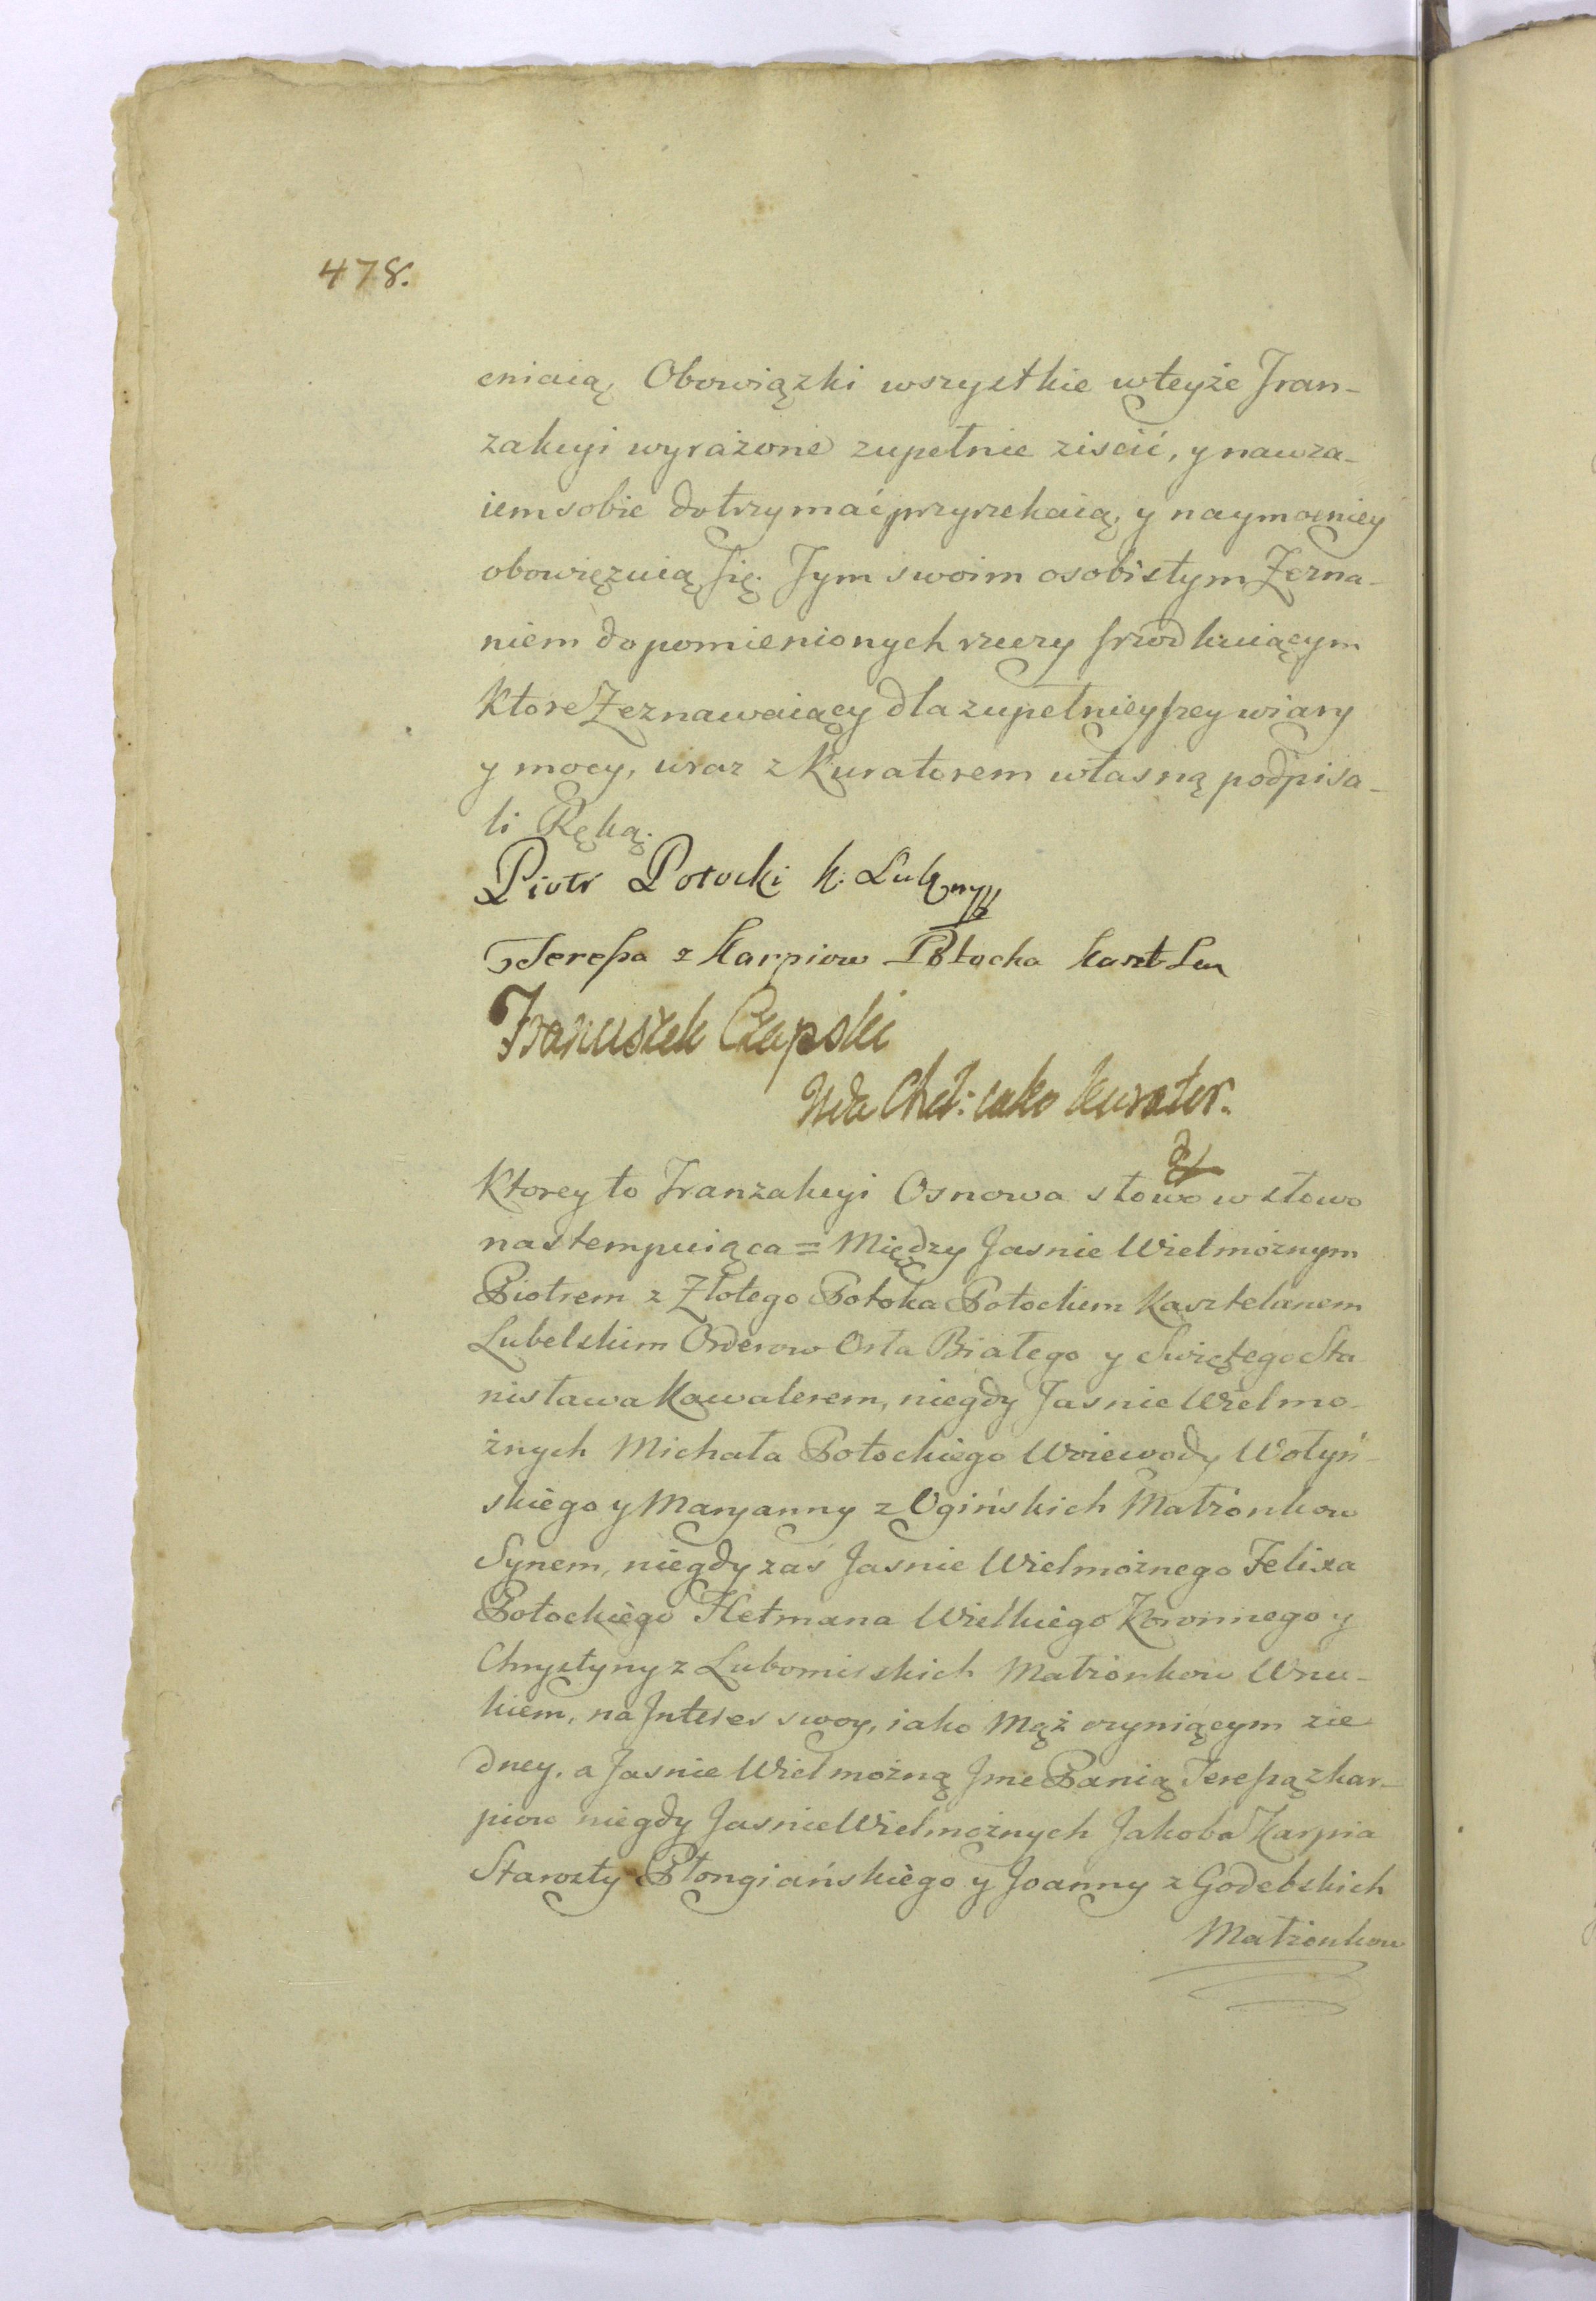 478.
eniaią, Obowiązki wszystkie wteyże Tran-
zakcyi wyrażone zupełnie ziscić, y nawza-
iem sobie dotrzymać przyrzekaią, y naymocniey
obowięzuią się. Tym swoim osobistym Zezna-
niem do pomienionych rzeczy srzodkuiącym
Ktore Zeznawaiący dla zupełnieyszey wiary
y mocy, wraz z Kuratorem własną podpisa-
li Ręką.
Piotr Potocki k. Lub
Teressa z Karpiow Potocka kaszt Lu
Franciszek Czapski
Wda Cheł: iako kurator.
Ktorey to Tranzakcyi Osnowa słowo w słowo
nastempuiąca = Między Jasnie Wielmożnym
Piotrem z Złotego Potoka Potockim Kasztelanem
Lubelskim Orderow Orła Białego y Swiętego Sta
nisława Kawalerem, niegdy Jasnie Wielmo-
żnych Michała Potockiego Woiewody Wołyń-
skiego y Maryanny z Ogińskich Małżonkow
Synem, niegdy zaś Jasnie Wielmożnego Felixa
Potockiego Hetmana Wielkiego Koronnego y
Chrystyny z Lubomirskich Małżonkow Wnu-
kiem, na Interes swoy, iako Mąż czyniącym zie
dney, a Jasnie Wielmożną Jme Panią Teressą z kar-
piow niegdy Jasnie Wielmożnych Jakoba Karpia
Starosty Płongiańskiego y Joanny z Godebskich
Małżonkow